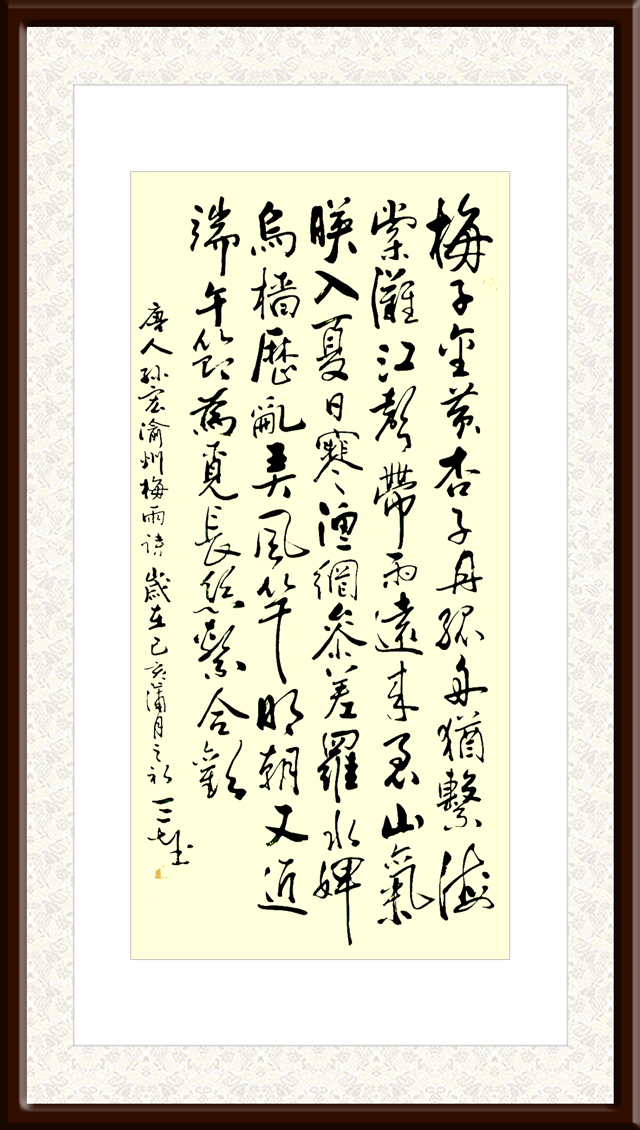 梅子金黄杏子丹孤舟猶繫海
棠灘江聲帶雨遠來急山氣
暎入夏日寒漁網參差羅水婢
烏檣歷亂弄風竿明朝又近
端午節為覓長絲繫合歡
唐人孙宏渝州梅雨詩歲在己亥蒲月之初